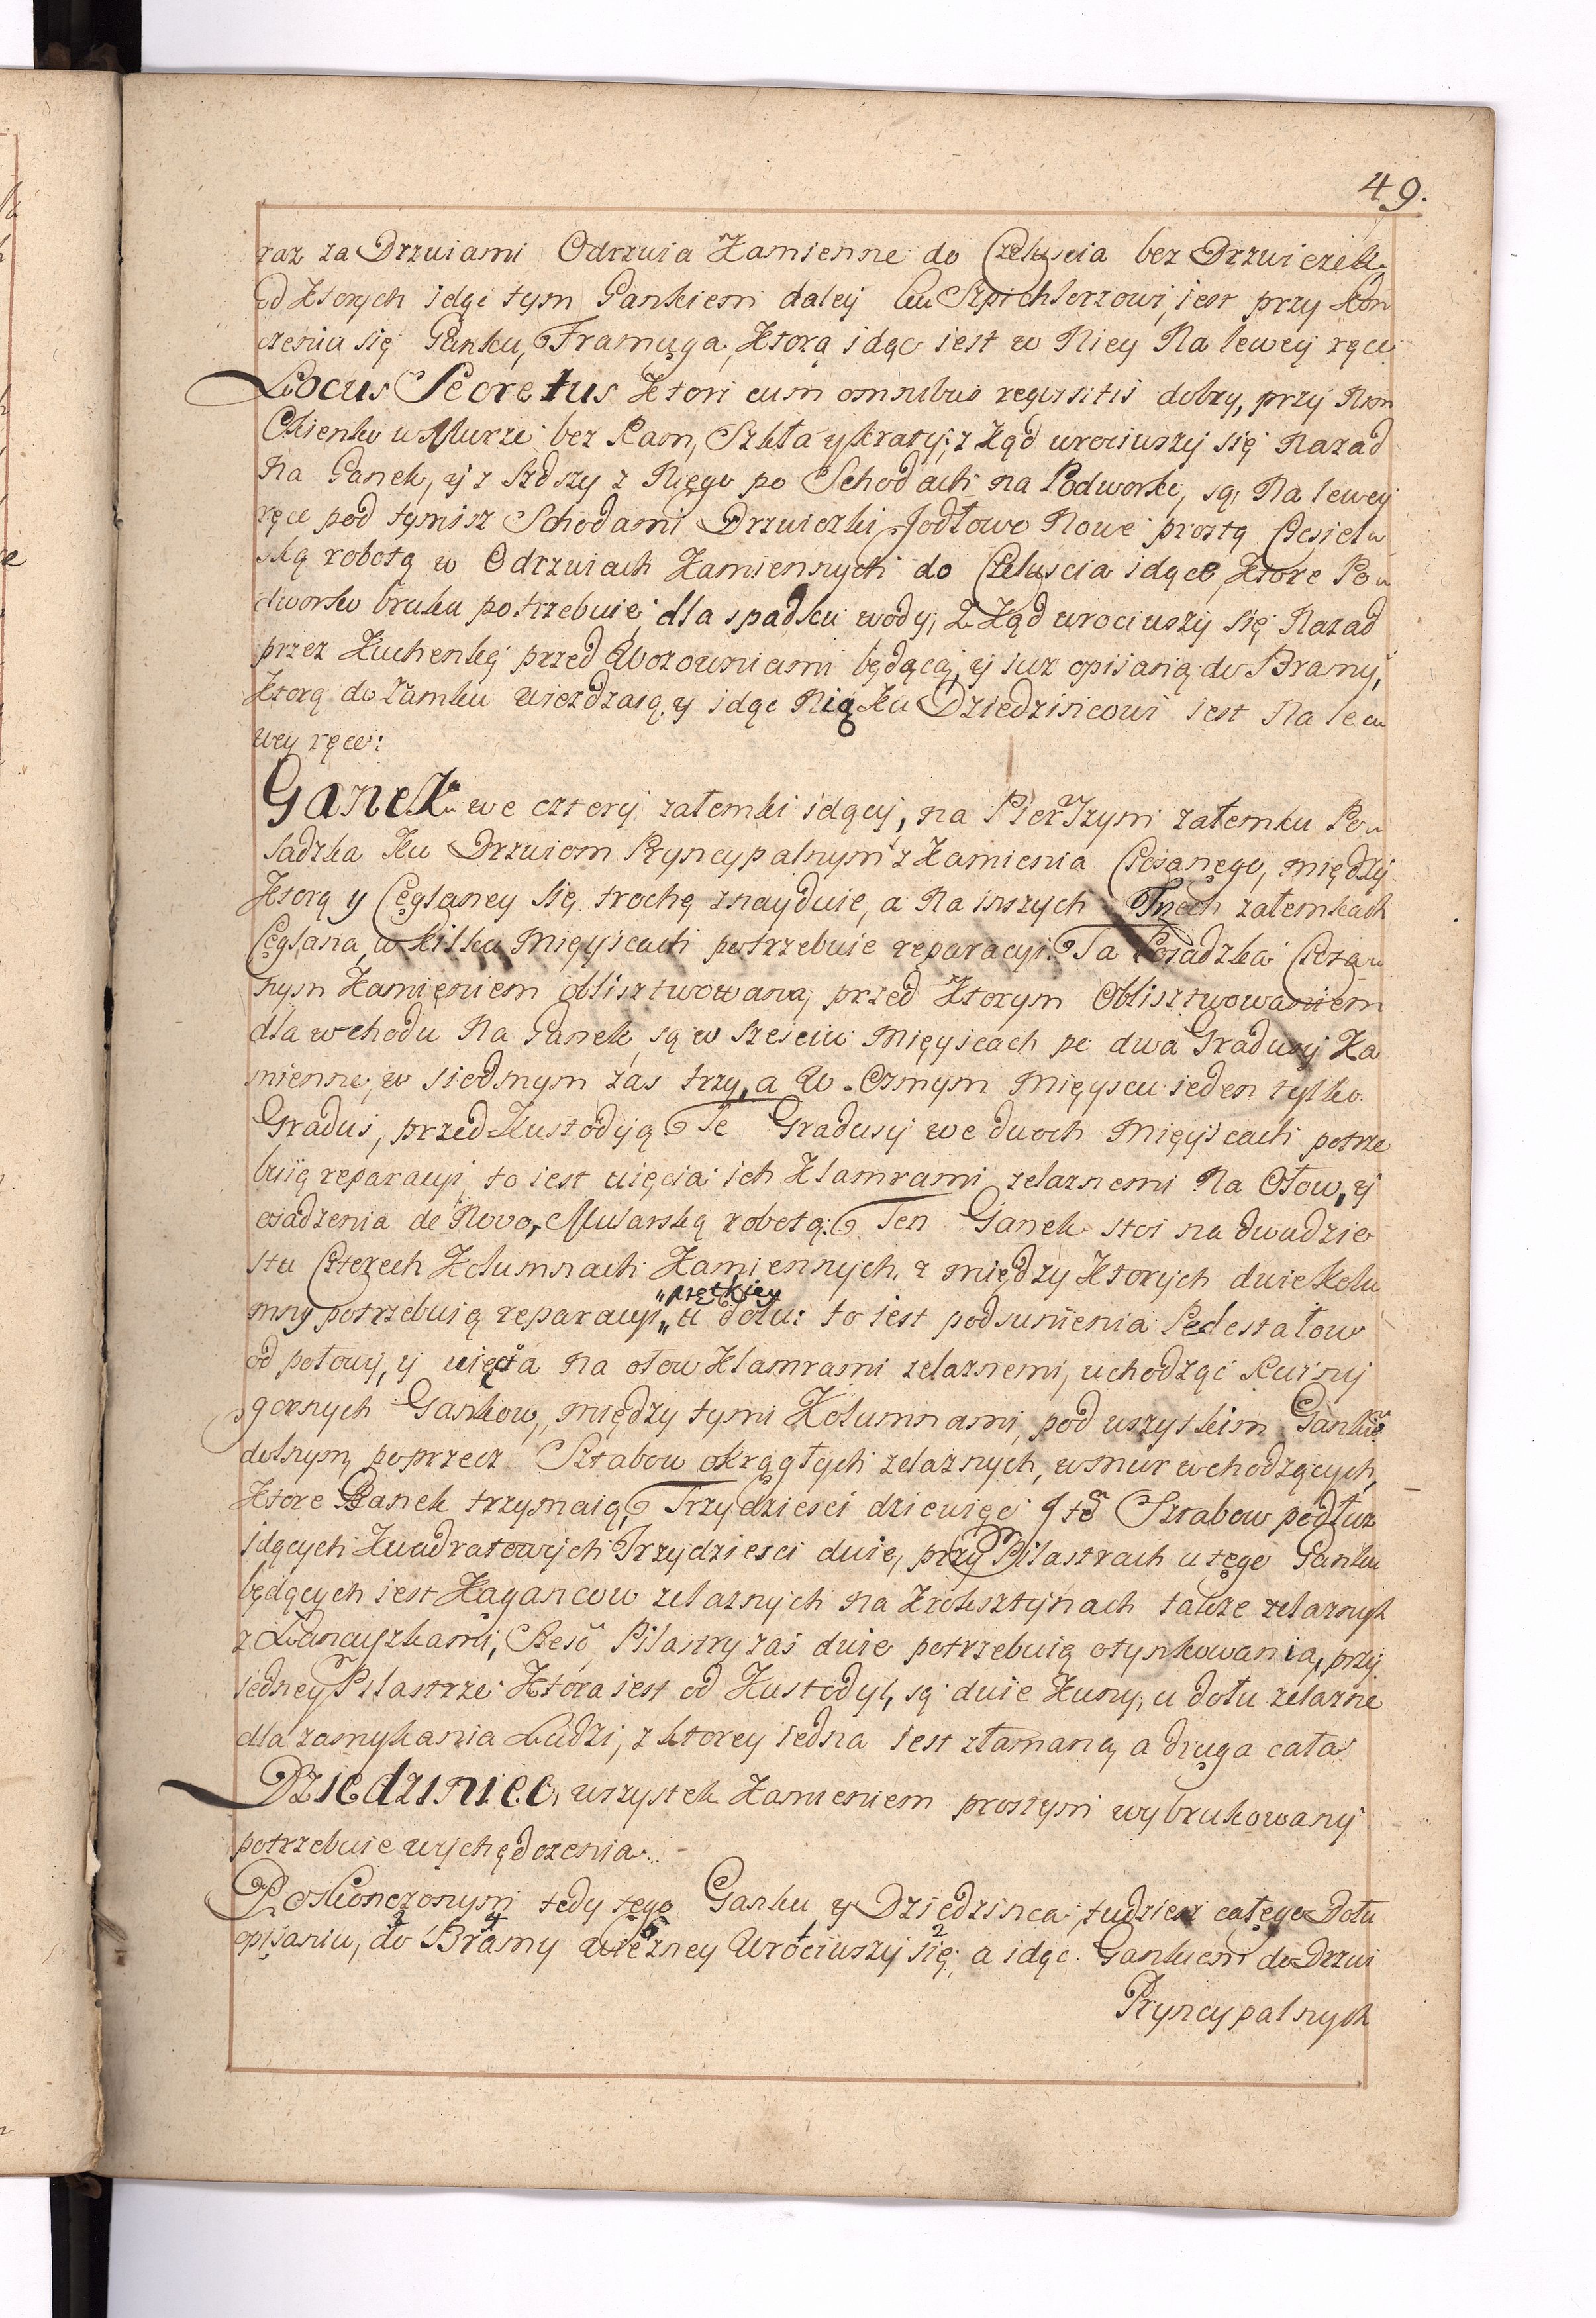 49.
raz za Drzwiami Odrzwia Kamienne do Czeluscia bez Drzwiczek
od Ktorych idąc tym Gankiem daley ku Szpichlerzowi, iest przy Kon
czeniu się Ganku, Framuga, Ktorą idąc iest w Niey Na lewey ręce
Locus Secretus Ktory cum omnibus requisitis dobry, przy Nim
Okienko w Murze bez Ram, Szkła y kraty; z Kąd wrociwszy się Nazad
Na Ganek, y z Szdszy z Niego po Schodach na Podworko, są Na lewey
ręce pod tymisz Schodami Drzwiczki Jodłowe Nowe prostą Ciesiel
ską robotą w Odrzwiach Kamiennych do Czeluscia idące, Ktore Po
dworko bruku potrzebuie dla spadku wody; Z Kąd wrociwszy się Nazad
przez Kuchenkę przed Wozowniami będącą, y iuz opisaną do Bramy,
Ktorą do Zamku wiezdzaią, y idąc Nią Ku Dziedzincowi iest Na le
wey ręce:
Ganek we cztery załomki idący, na Pierszym załomku Po
sadzka Ku Drzwiom Pryncypalnym z Kamienia Ciosanego, między
Ktorą y Ceglaney się trochę znayduie, a Na inszych Trzech załomkach
Ceglana, w kilku Mieyscach potrzebuie reparacyi. Ta Posadzka Ciosa
nym Kamieniem oblisztwowana, przed Ktorym Oblisztwowaniem
dla wchodu Na Ganek, są w szesciu Mieyscach po dwa Gradusy Ka
mienne, w siodmym zas trzy, a w Osmym Mieyscu ieden tylko
Gradus, przed Kustodyą. Te Gradusy we dwoch Mieyscach potrze
buią reparacyi, to iest uięcia ich Klamrami zelaznemi Na Ołow, y
osadzenia de Novo, Mularską robotą. Ten Ganek stoi na dwudzie
stu Czterech Kolumnach Kamiennych, z między Ktorych dwie Kolu
mny potrzebuią reparacyi „prętkiey„ u dołu: to iest podsunienia Pedestałow
od połowy, y uięcia na ołow Klamrami zelaznemi, uchodząc Ruiny
gornych Gankow, między tymi Kolumnami, pod wszytkim Gankie
dolnym, poprzecz Sztabow okrągłych zelaznych, w mur wchodzących,
Ktore Ganek trzymaią, Trzydziesci dziewięc Sztabow podłuz
idących Kwadratowych Trzydziesci dwie, przy Pilastrach u tego Ganku
będących iest Kagancow zelaznych na Kroksztynach także zelaznych
z Łancuszkami, Szesc Pilastry zas dwie potrzebuią otynkowania, przy
iedney Pilastrze Ktora iest od Kustodyi, są dwie Kuny, u dołu zelazne
dla zamykania Ludzi, z ktorey iedna iest złamana, a druga cała.
Dziedziniec, wszystek Kamieniem prostym wybrukowany
potrzebuie wychędozenia.
Poskonczonym tedy tego Ganku y Dziedzinca, tudziesz całego Dołu
opisaniu, do Bramy Wiezney Wrociwszy się, a idąc Gankiem do Drzwi
Pryncypalnych